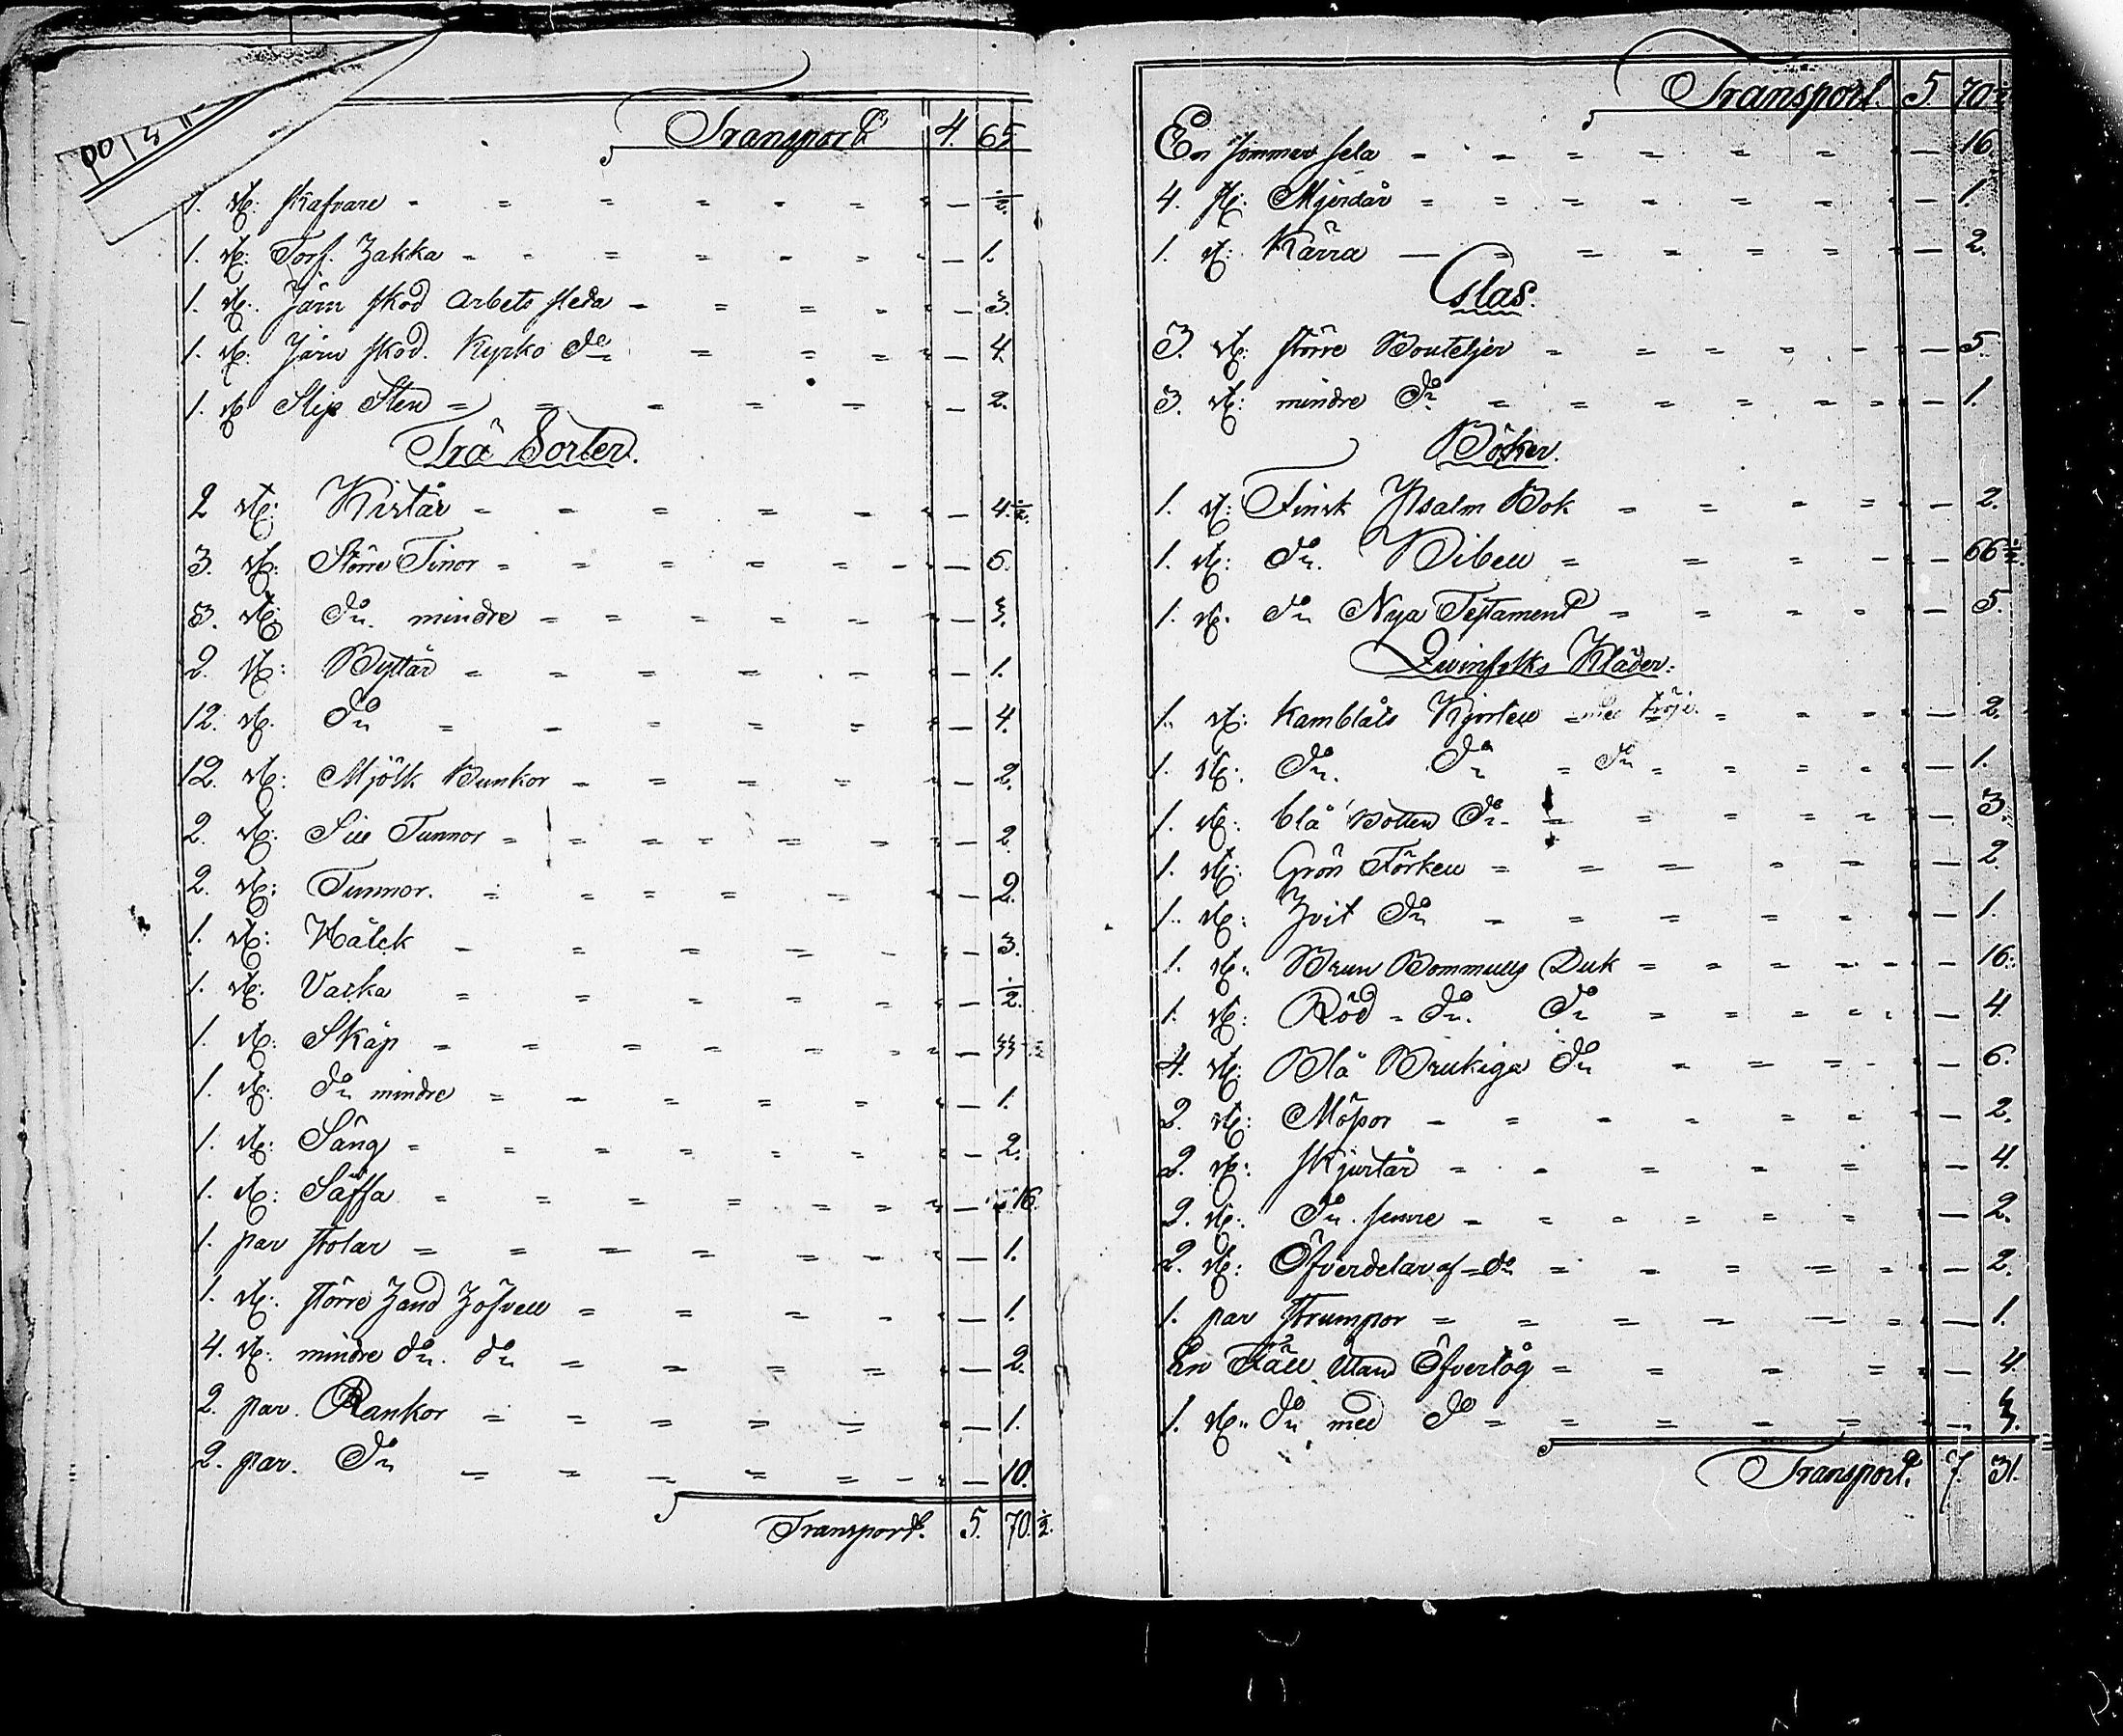 Transport 4. 65.
1. st: skafvare — ½.
1. st: Torf. Hakka — 1.
1. st: Järn skod Arbets släda — 3.
1. st: Järn skod. Kyrko do — 4.
1. st Slip Sten — 2.
Trä Sorter.
2 st: Kistår — 4.½.
3. st: Större Tinor — 6.
3. st: do mindre — 3.
2. st: Byttår — 1.
12. st. do — 4.
12. st: Mjölk Bunkor — 2.
2. st: Sill Tunnor — 2.
2. st: Tunnor. — 2.
1. st: Kälck — 3.
1. st: Vacka — ½.
1. st: Skåp — 33
1. st: do mindre — 1.
1. st: Säng — 2.
1. st: Såffa — 16.
1. par stolar — 1.
1. st: större Hand Höfvell — 1.
4. st: mindre do. do — 2.
2. par. Rankor — 1.
2. par. do — 10.
Transport. 5. 70.½.
Transport. 5 70½
En sommar sela — 16.
4. st: Mjerdår — 1.
1. st: Kärra — 2.
Glas.
3. st: större Bouteljer — 5.
3. st: mindre do — 1.
Böker.
1. st: Finsk Psalm Bok — 2.
1. st: do. Bibell — 66½.
1. st. do Nya Testament — 5.
Qwinfolks Kläder.
1. st: Kamblåts Kjortell med tröje — 2.
1. st: do. do do — 1.
1. st: blå Botten do — 3.
1. st: Grön Förkell — 2.
1. st: Hvit do — 1.
1. st: Brun Bommulls Duk — 16.
1. st: Röd do. do — 4.
4. st: Blå Brukiga do — 6.
2. st: Mössor — 2.
2. st: skjortår — 4.
2. st: do. semre — 2.
2. st: Öfverdelar af do — 2.
1. par strumpor — 1.
En Fäll utan Öfvertog — 4.
1. st. do med do — 3.
Transport. 7. 31.